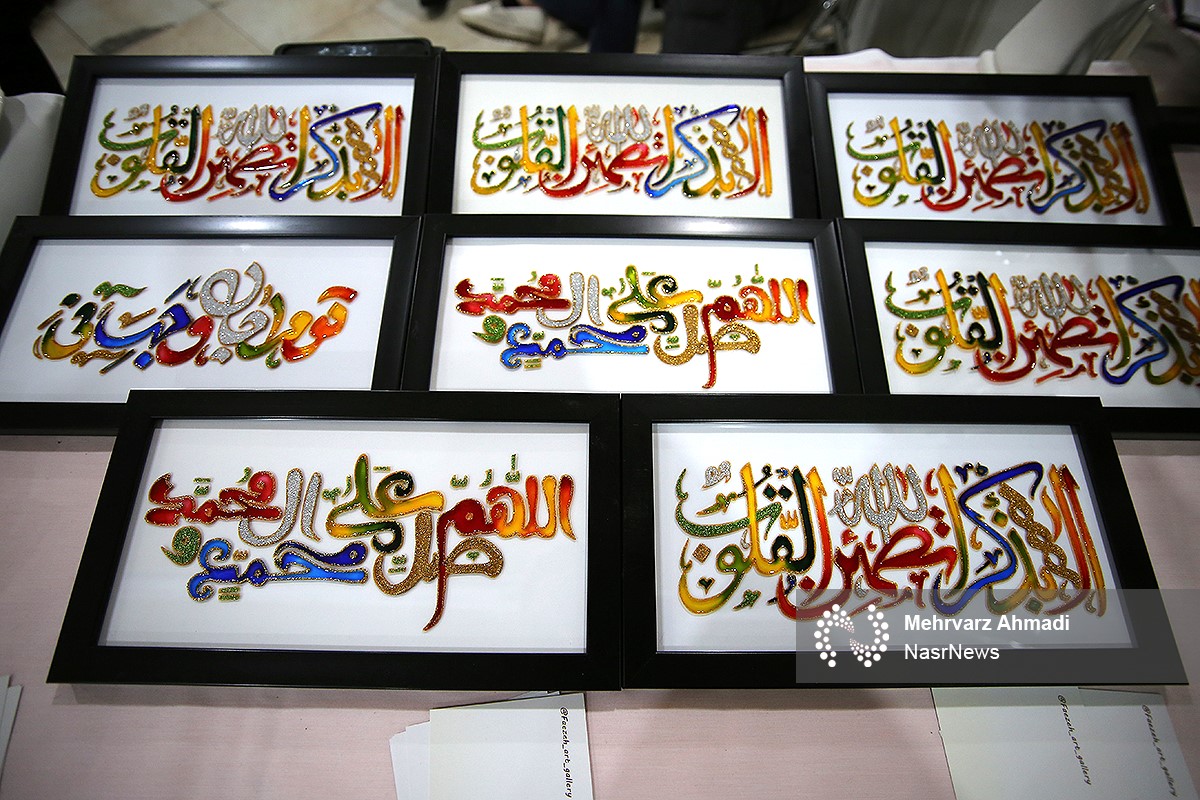 الا بذکر الله تطمئن القلوب
الا بذکر الله تطمئن القلوب
الا بذکر الله تطمئن القلوب
تو مرا جان و جهانی
اللهم صل علی محمد و آل محمد
الا بذکر الله تطمئن القلوب
اللهم صل علی محمد و آل محمد
الا بذکر الله تطمئن القلوب
Mehrvarz Ahmadi
NasrNews
@Faezeh_art_gallery
@Faezeh_art_gallery
@Faezeh_art_gallery